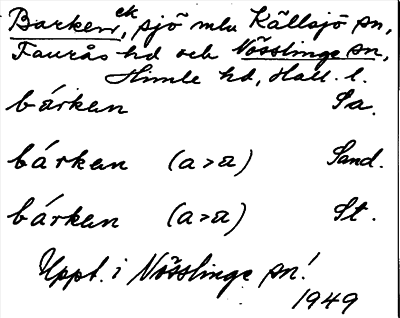 Barken, sjö mln Källsjö sn,
Faurås hd och Nösslinge sn,
Himle hd, Hall. l.
bárken Sa.
bárken (a>a) Sand.
bárken (a>a) St.
Uppt. i Nösslinge sn!
1949